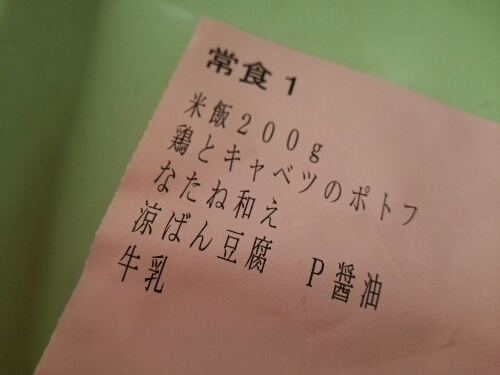 常食1
米飯200g
鶏とキャベツのポトフ
なたね和え
涼ばん豆腐　P醤油
牛乳